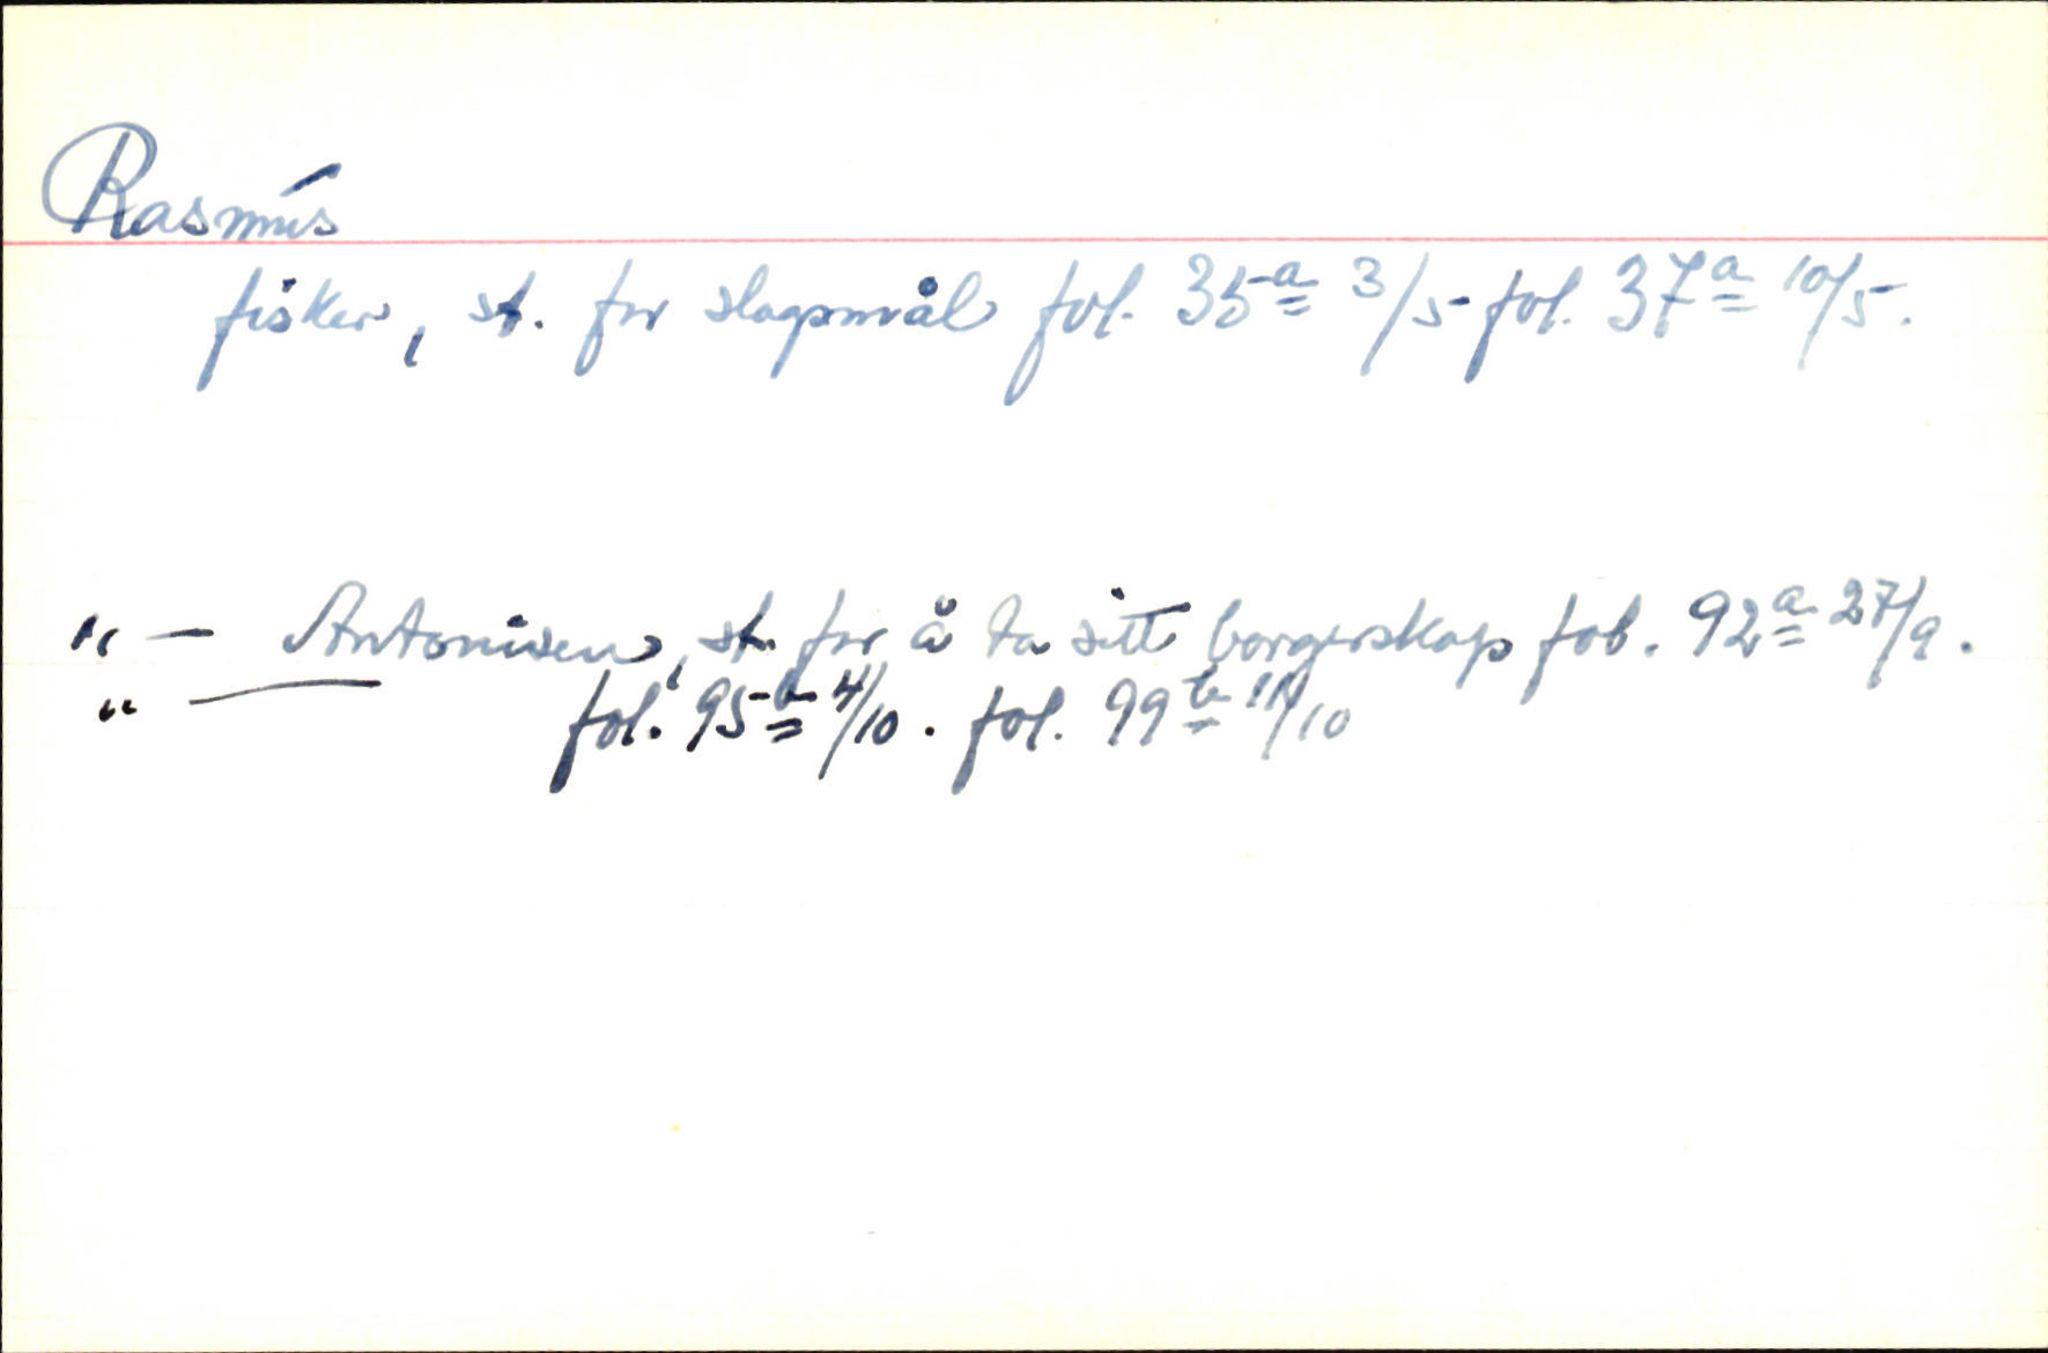 Rasmus
fisker, st. for slagsmål fol. 35a 3/5 fol. 37a 10/5.
" — Antonisen, st. for å ta sitt borgerskap fol. 92a 27/9.
" — fol. 95b 4/10. fol. 99b 11/10